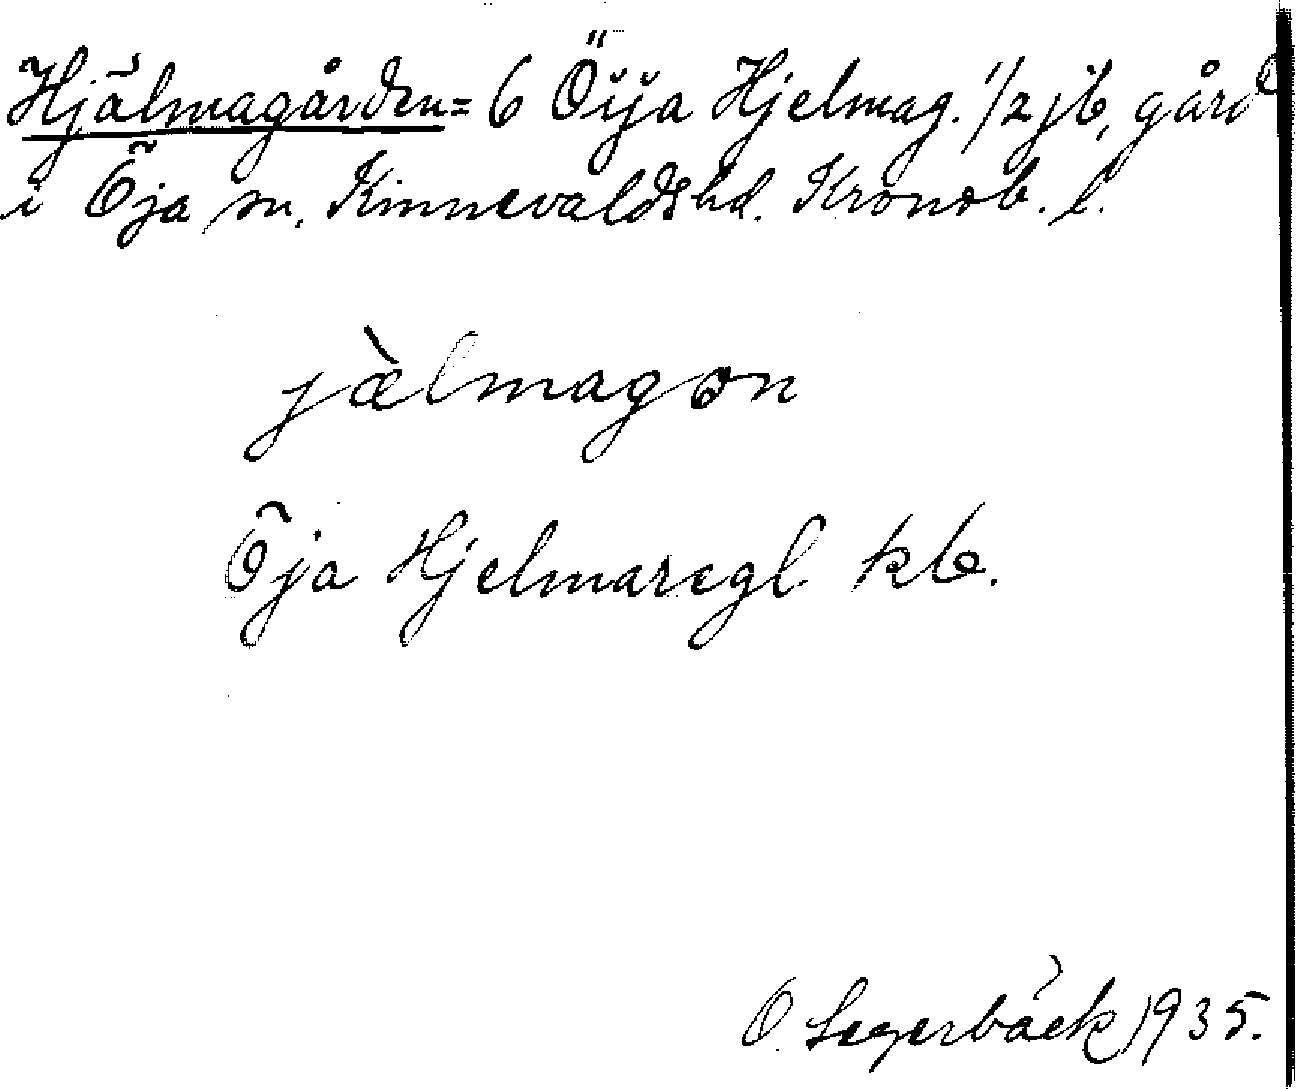 Hjälmagården = 6 Öÿja Hjelmag. 1/2 jb, gård
i Öja sn. Kinnevaldshd. Kronob. l.
jàlmagon
Öja Hjelmaregl kb.
O. Segerbäck 1935.